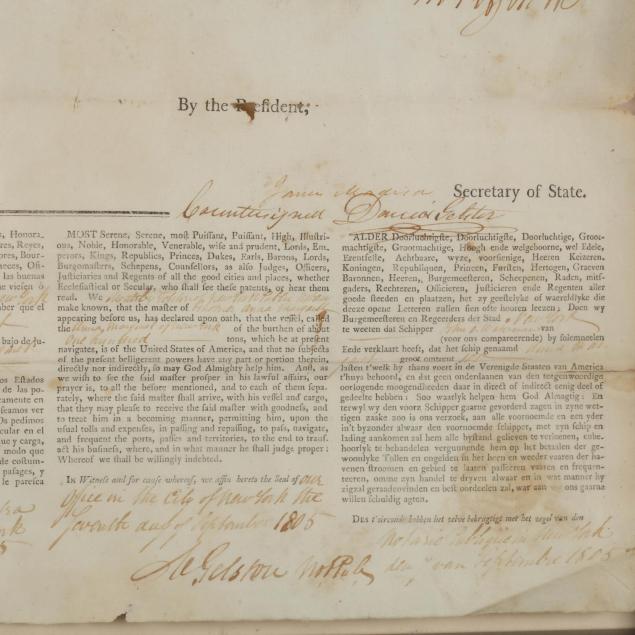 By the President,
James Madison Secretary of State.
Countersigned David Gelston
s, Honora.
res, Reyes,
ores, Bour-
aces, Ofi-
las buenas
bajo de ju-
os Estados
de las po-
camente en
seamos ver
Os pedimos
cular en el
que y carga,
modo que
de costum-
pasages, y
le pareica
MOST Serene, Serene, most Puissant, Puissant, High, Illustri-
ous, Noble, Honorable, Venerable, wise and prudent, Lords, Em.
perors, Kings, Republics, Princes, Dukes, Earls, Barons, Lords,
Burgomasters, Schepens, Counsellors, as also Judges, Officers,
Justiciaries and Regents of all the good cities and places, whether
Ecclesiastical or Secular, who shall see these patents, or hear them
read. We
make known, that the master of
appearing before us, has declared upon oath, that the vessel, called
the of the burthen of about
one hundred tons, which he at present
navigates, is of the United States of America, and that no subjects
of the present belligerent powers have any part or portion therein,
directly nor indirectly, so may God Almighty help him. And, as
we wish to see the said master prosper in his lawful affairs, our
prayer is, to all the before mentioned, and to each of them sepa-
rately, where the said master shall arrive, with his vessel and cargo,
that they may please to receive the said master with goodness, and
to treat him in a becoming manner, permitting him, upon the
usual tolls and expenses, in passing and repassing, to pass, navigate,
and frequent the ports, passes and territories, to the end to transf.
act his business, where, and in what manner he shall judge proper:
Whereof we shall be willingly indebted.
In Witness and for cause whereof, we affix hereto the Seal of our
office in the City of New York the
seventh day of September 1805
ALDER Doorluchtigste, Doorluchtige, Groot-
machtigste, Grootmachtige, Hoogh ende welgeboorne, wel Edele,
Erentfeste, Achtbaare, wyze, voorsienige, Heeren Keizeren,
Koningen, Republiquen, Princen, Fürsten, Hertogen, Graeven
Baronnen, Heeren, Burgemeesteren, Scheepenen, Raden, mitf-
gaders, Rechteren, Officieren, Justicieren ende Regenten aller
goede steeden en plaatzen, het zy geestelyke of waereldlyke die
deze opene Letteren zullen sien ofte hooren lezen: Doen wy
Burgemeesteren en Regeerders der Stad
te weeten dat Schipper van
(voor ons compareerende) by solemneelen
Eende verklaart heeft, dat het schip genaamd
groot omtrent
lasten t'welk by thans voert in de Verenigde Staaten van America
t'huys behoord, en dat geen onderdaanen van den tegenwoordige
oorlogende moogendheeden daar in direct of indirect eenig deel of
gedeelte hebben: Soo waarlyk helpen hem God Almagtig: En
terwyl wy den voorz Schipper gaarne gevorderd zagen in zyne wet-
tigen zaake zoo is ons verzoek, aan alle voornoemde en een yder
in't byzonder alwaar den voornoemde schipper, met zyn schip en
lading aankomen zal hem alle bystand gelieven te verleenen, enbe-
hoorlyk te behandelen vergunnende hem op het betaalen der ge-
woonlyke Tollen en ongelden in het heen en weeder vaaren der ha-
venen stroomen en gebied te laaten passeeren vaaren en frequen-
teeren, omme zyn handel te dryven alwaar en in wat manier hy
zigzal geraadevinden en best oordeelen zal, war aan ons gaarne
willen schuldig agten.
DES t'oirconde hebben het zelve bekragtigt met het zegel van den
van September 1805